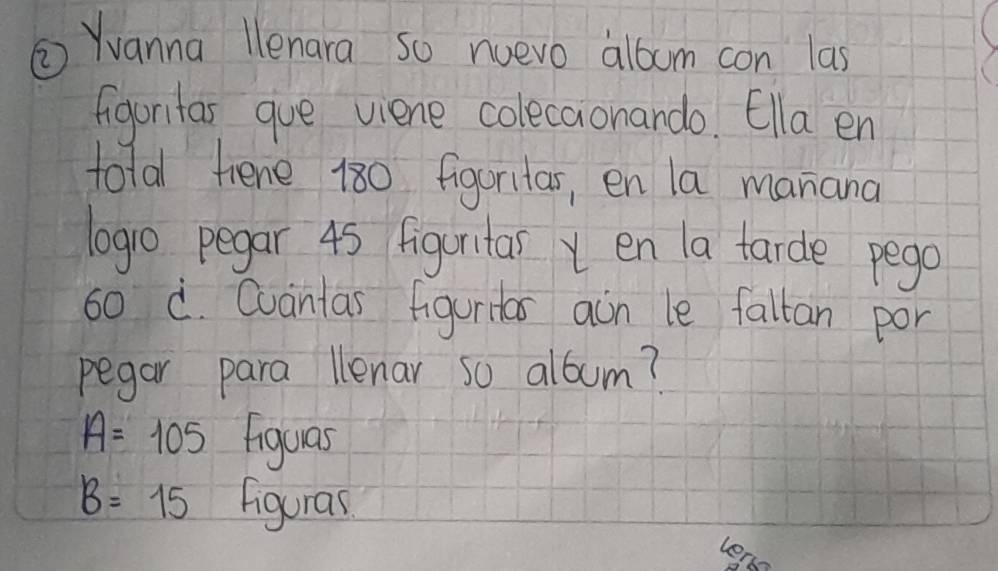 ② Yvanna llenara su nuevo álbum con las
figuritas que viene coleccionando. Ella en
total tiene 180 figuritas, en la mañana
logro pegar 45 figuritas y en la tarde pego
60 ¿. Cuántas figuritas aún le faltan por
pegar para llenar su album?
A= 105 figuras
B= 15 figuras.